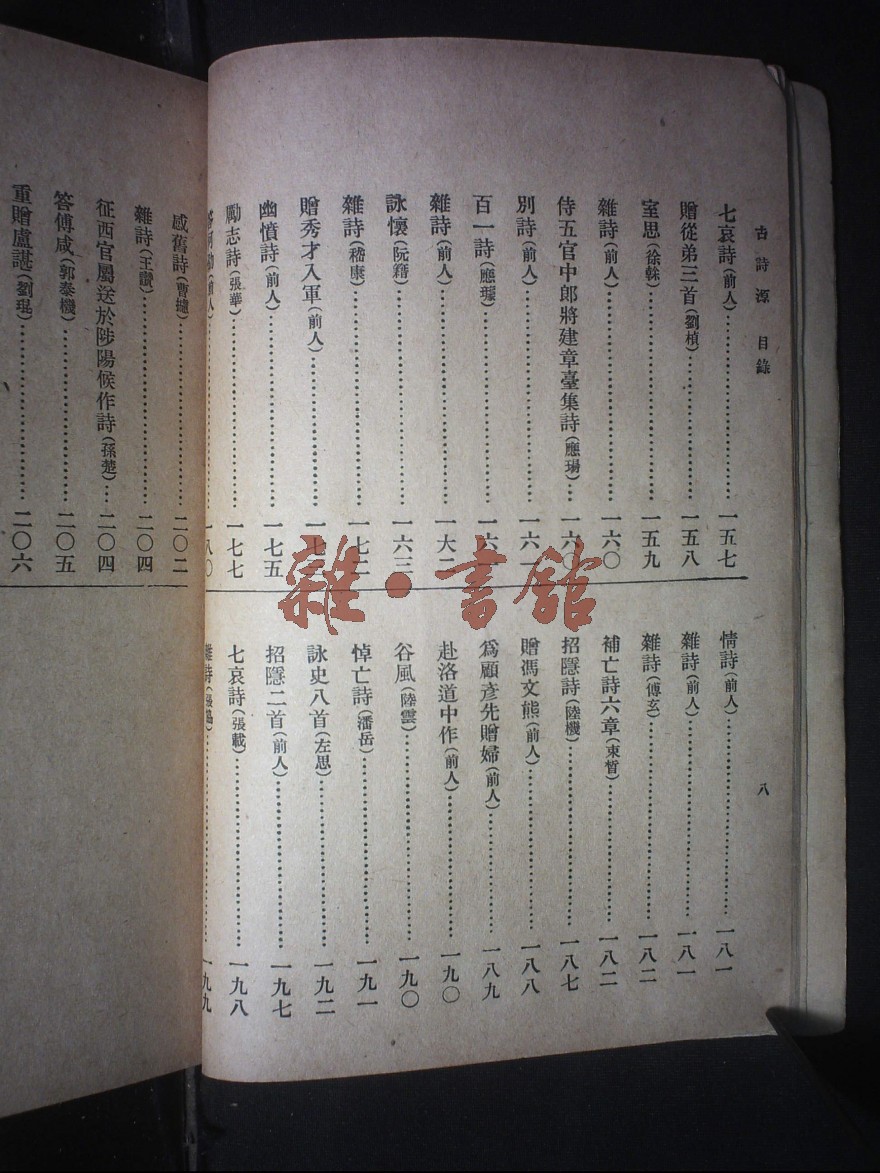 古詩源 目錄
八
七哀詩(前人)……一五七
贈從弟三首(劉楨)……一五八
室思(徐榦)……一五九
雜詩(前人)……一六〇
侍五官中郎將建章臺集詩(應瑒)…一六〇
別詩(前人)……一六一
百一詩(應璩)……一六
雜詩(前人)……一六二
詠懷(阮籍)……一六三
雜詩(嵇康)……一七二
贈秀才入軍(前人)……一七
幽憤詩(前人)……一七五
勵志詩(張華)……一七七
前人)……一八〇
情詩(前人)……一八一
雜詩(前人)……一八一
雜詩(傅玄)……一八二
補亡詩六章(束皙)……一八二
招隱詩(陸機)……一八七
贈馮文熊(前人)……一八八
爲顧彥先贈婦(前人)……一八九
赴洛道中作(前人)……一九〇
谷風(陸雲)……一九〇
悼亡詩(潘岳)……一九一
詠史八首(左思)……一九二
招隱二首(前人)……一九七
七哀詩(張載)……一九八
雜詩(張……一九九
感舊詩(曹攄)……二〇二
雜詩(王讚)……二〇四
征西官屬送於陟陽候作詩(孫楚)…二〇四
答傅咸(郭泰機)……二〇五
重贈盧諶(劉琨)……二〇六
雜·書館